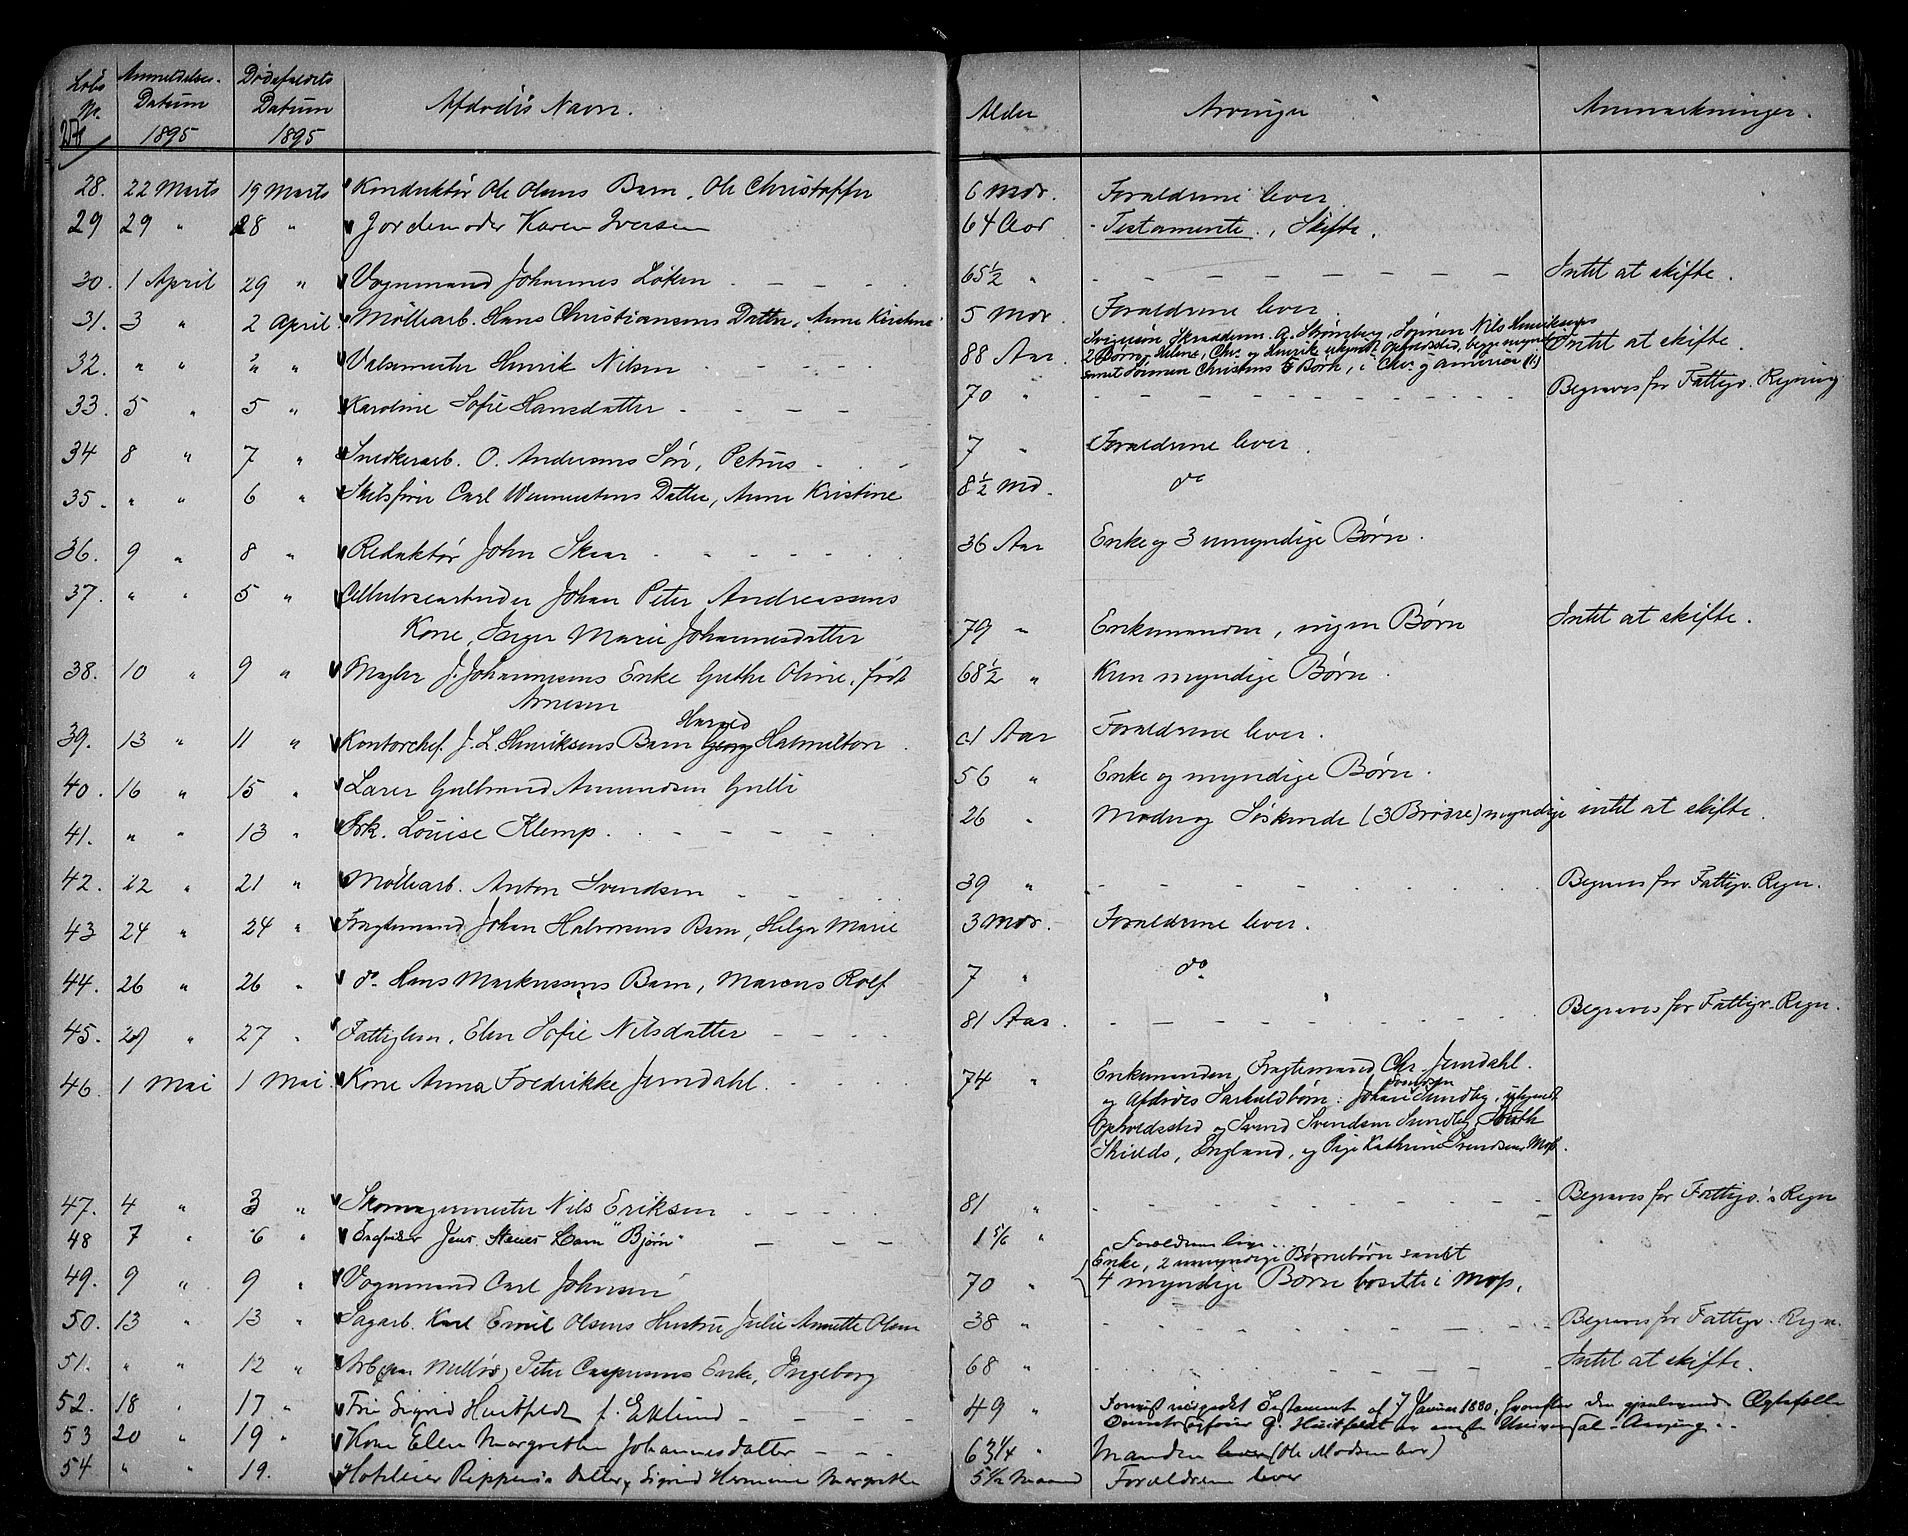 Løbe No. Anmeldelses Datum 1895 Dødsfaldets Datum 1895 Afdødes Navn. Alder Arvinger Anmærkninger.
28. 22 Marts 19 Marts Konduktør Ole Olsens Barn, Ole Christoffer 6 Mdr. Forældrene lever.
29 29 " 28 " Jordemoder Karen Iversen 64 Aar - Testamente., Skifte.
30. 1 April 29 " Vognmand Johannes Løken 65½ " Intet at skifte.
31. 3 " 2 April Møllearb. Hans Christiansens Datter, Anne Kirstine 5 Mdr Forældrene lever.
32. " " 2 " Valsemester Henrik Nilsen 88 Aar Svigersøn Skræderm. A. Strømberg, Sønnen Nils Henriksens Intet at skifte.
2 Børn, Helene, Chr. og Henrik ukjendt Opholdssted, begge myndige
samt Sønnen Christens 5 Børn, i Chr. og Amerika (1)
33. 5 " 5 " Karoline Sofie Hansdatter 70 " Begraves for Fattigv. Regning
34 8 " 7 " Snedkerarb. O. Andersens Søn, Petrus 7 " Forældrene lever.
35. " " 6 " Skibsfører Carl Wennerstens Datter, Anne Kristine 8½ Md. do
36. 9 " 8 " Redaktør John Skar 36 Aar Enke og 3 umyndige Børn.
37. " " 5 " Cellulosearbeider Johan Peter Andreassens
Kone, Inger Marie Johannesdatter 79 " Enkemanden, ingen Børn Intet at skifte.
38. 10 " 9 " Mægler J. Johannesens Enke Grethe Oline, født 68½ " Kun myndige Børn.
Arnesen
39. 13 " 11 " Kontorchef. J. L. Henriksens Barn Georg Harald Halmilton. 1 Aar Forældrene lever.
40. 16 " 15 " Lærer Gulbrand Amundsen Gulli 56 " Enke og myndige Børn.
41. " " 13 " Frk. Louise Klemp. 26 " Moder og Søskende (3 Brødre) myndige intet at skifte.
42. 22 " 21 " Møllearb. Anton Svendsen 39 " Begraves for Fattigv. Regn.
43 24 " 24 " Fragtemand Johan Halvorsens Barn, Helga Marie 3 Mdr. Forældrene lever.
44. 26 " 26 " do. Hans Markussens Barn, Marcus Rolf 7 " do
45. 29 " 27 " Fattiglem, Elen Sofie Nilsdatter 81 Aar. Begraves for Fattigv. Regn.
46. 1 Mai 1 Mai. Kone Anna Fredrikke Jemdahl. 74 " Enkemanden, Fragtemand Chr. Jemdahl.
og Afdødes Særkuldbørn: Johan Svendsen Sundby, ukjendt
Opholdssted og Svend Svendsen Sundby, South
Shields, England, og Pige Kathrine Svendsen, Moss.
47. 4 " 3 " Skomagermester Nils Eriksen 81 " Begraves for Fattigv.'s Regn
48 7 " 6 " Jens Steues Barn "Bjørn" 1 5/6 " Forældrene lever.
49. 9 " 9 " Vognmand Carl Johnsen 70 " Enke, 2 umyndige Børnebørn samt
4 myndige Børn bosatte i Moss.
50. 13 " 13 " Sagarb. Karl Emil Olsens Hustru Julie Annette Olsen 38 " Begraves for Fattigv. Regn.
51. " " 12 " Arb. (paa Melløs) Peter Caspersens Enke, Ingeborg 68 " Intet at skifte.
52. 18 " 17 " Fru Sigrid Huitfeldt f. Eklund 49 " Testament af 7 Januar 1880, hvorefter den gjenlevende Ægtefælle
G. Huitfeldt er eneste Universal-Arving.
53 20 " 19 " Kone Ellen Margrethe Johannesdatter 63¼ " Manden lever (Ole Madsen bor)
54 " " 19. Hoteleier Rippens Datter, Sigrid Hermine Margrethe 5½ Maaned Forældrene lever